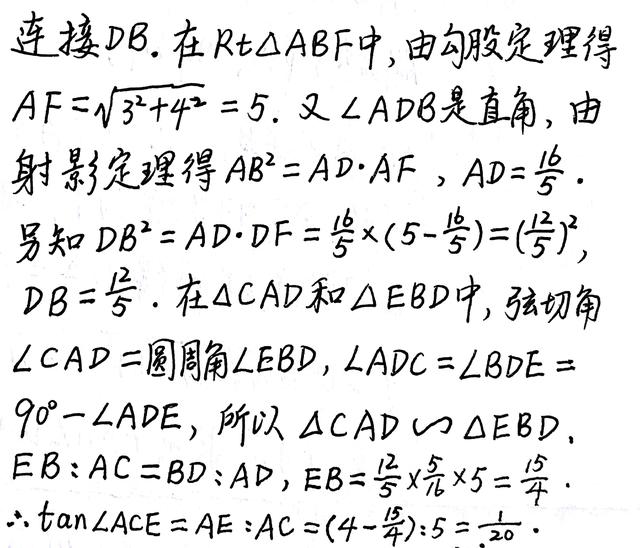 连接DB. 在Rt△ABF中, 由勾股定理得
AF=√(3²+4²) =5. 又∠ADB是直角, 由
射影定理得AB²=AD·AF , AD=16/5 .
另知DB²=AD·DF=16/5×(5-16/5)=(12/5)²,
DB=12/5 . 在△CAD和△EBD中, 弦切角
∠CAD=圆周角∠EBD, ∠ADC=∠BDE=
90°-∠ADE, 所以 △CAD∽△EBD.
EB:AC=BD:AD, EB=12/5×5/16×5=15/4 .
∴tan∠ACE=AE:AC=(4-15/4):5=1/20 .